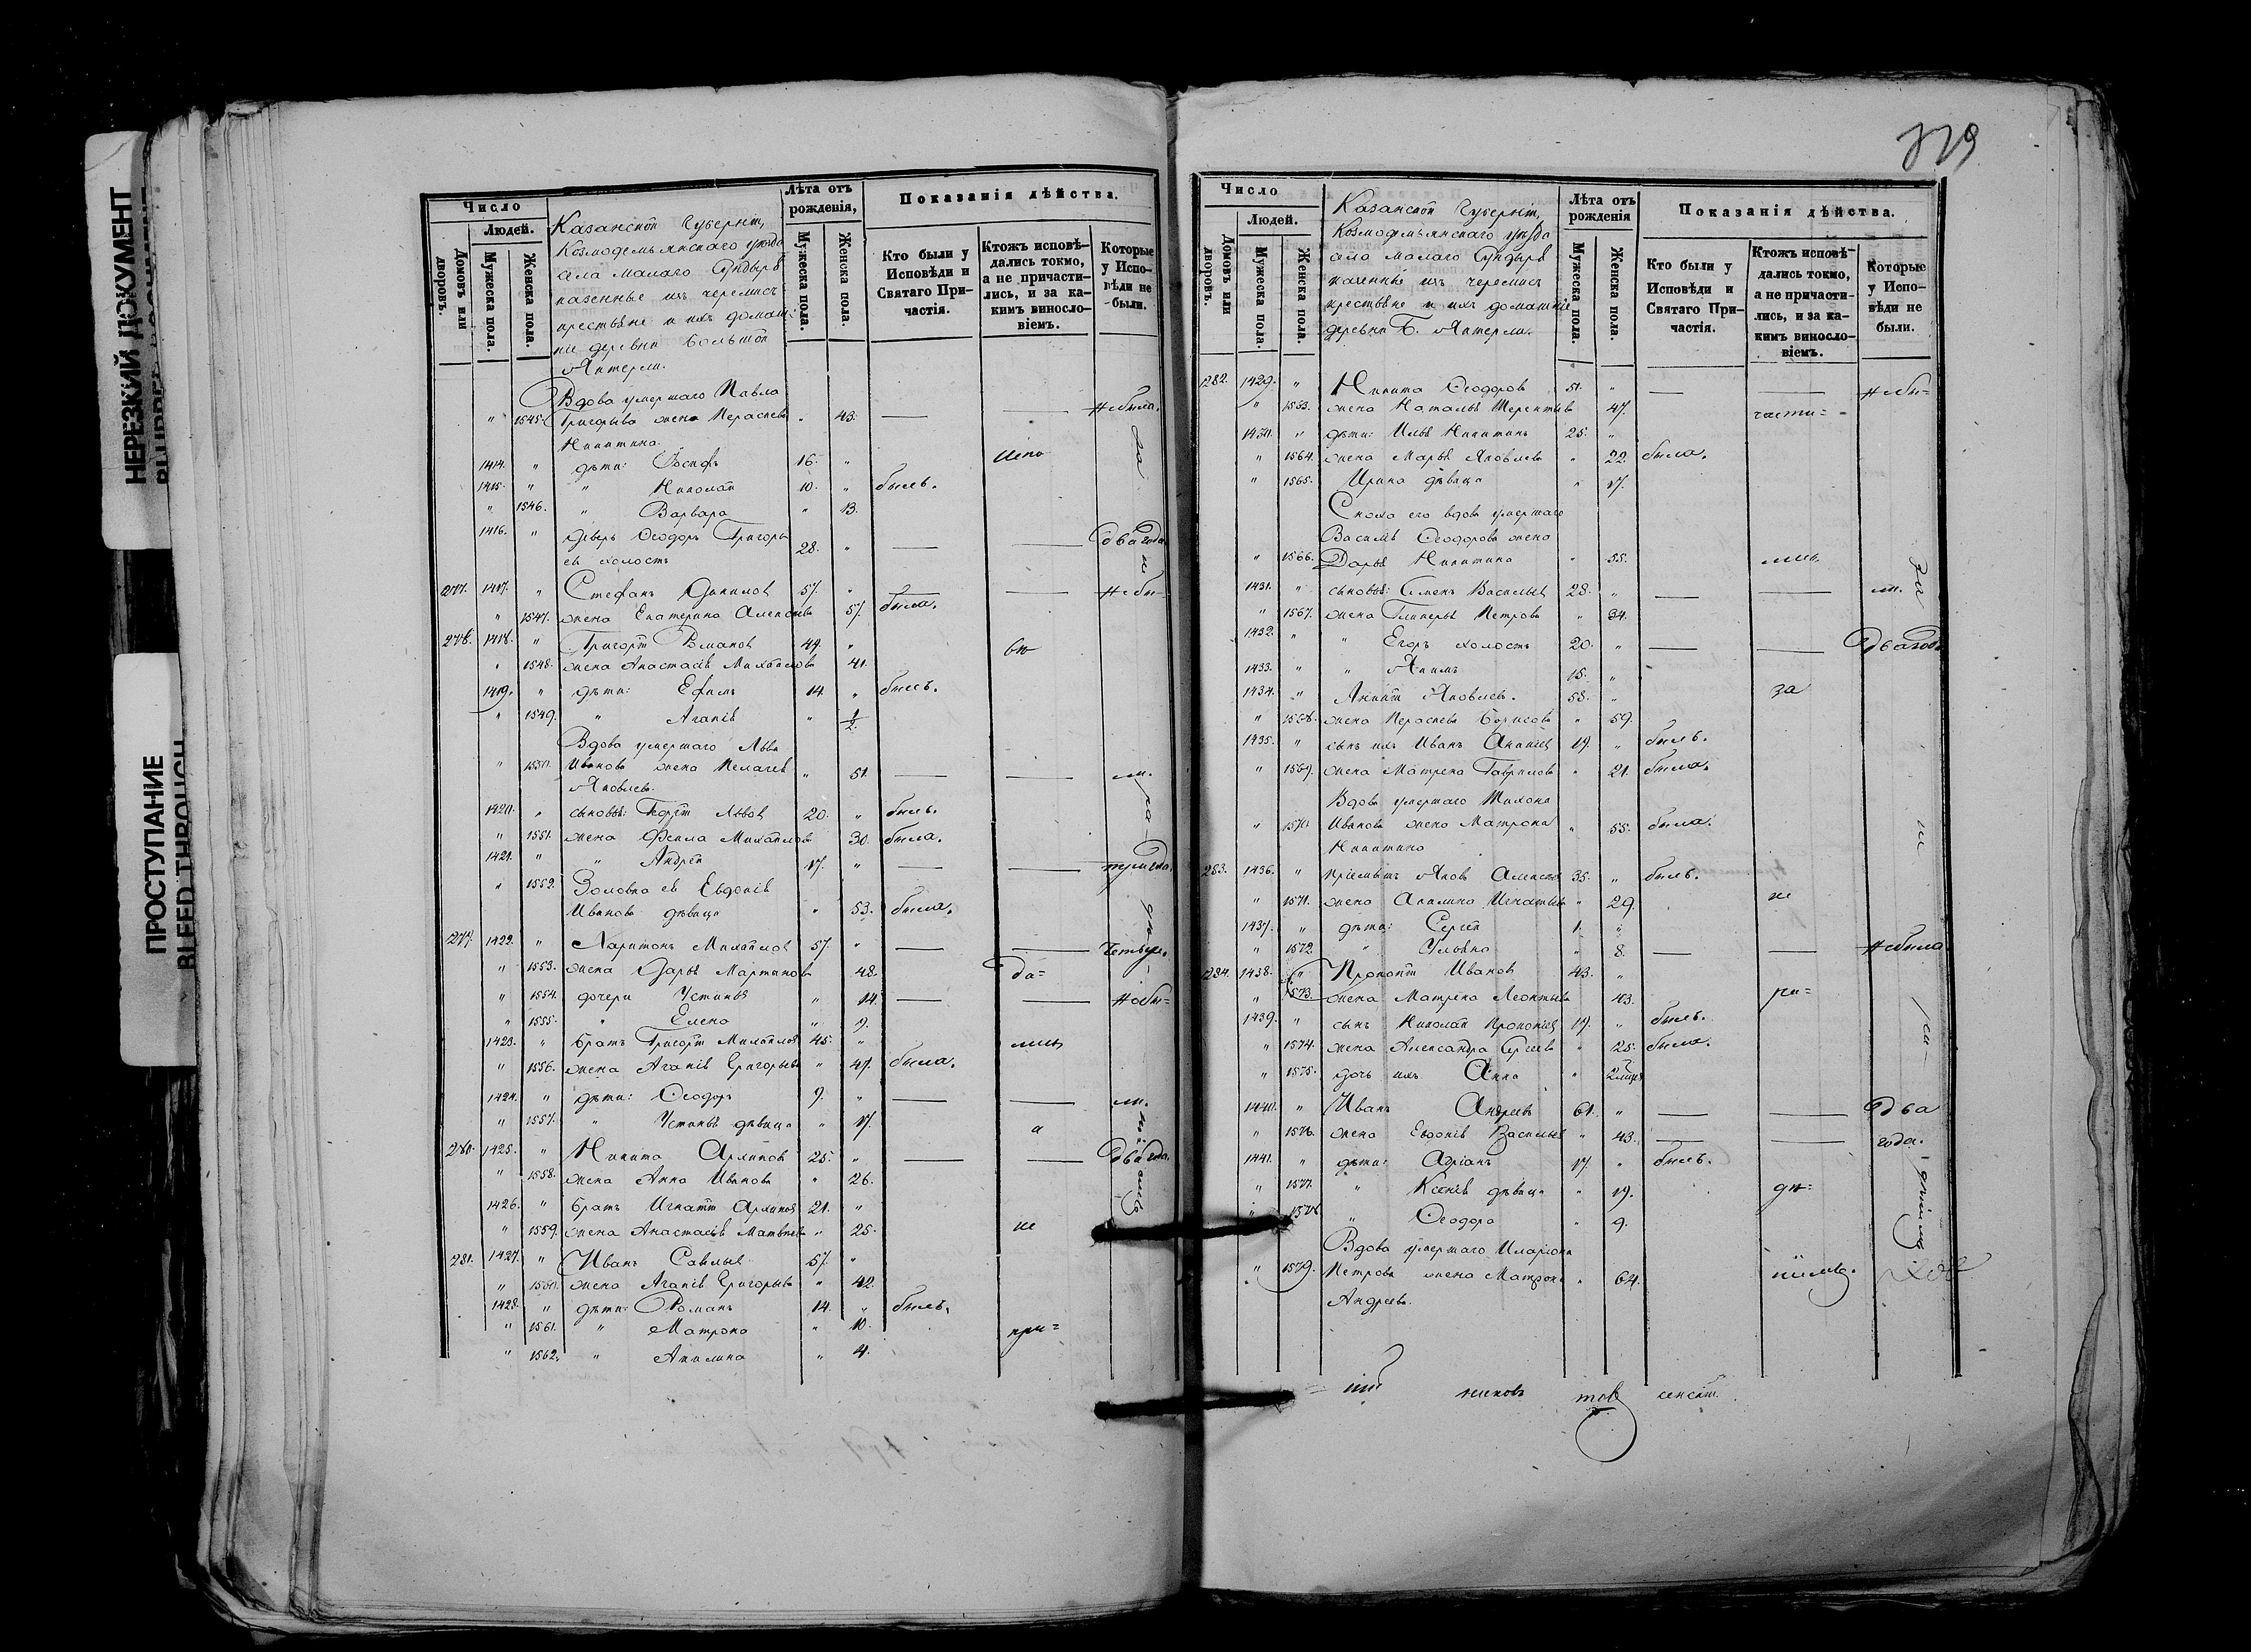 НЕРЕЗКИЙ ДОКУМЕНТ
ПРОСТУПАНИЕ
BLEED THROUGH
Число
Людей.
Домовъ или дворовъ.
Мужеска пола.
Женска пола.
Казанской Губерніи,
Козмодемьянскаго уѣзда
села Малаго Сундыря
казенные изъ черемисъ
крестьяне и ихъ домаш-
ніе деревни Большой
Актерли.
Лѣта отъ рожденія,
Мужеска пола.
Женска пола.
Показанія дѣйства.
Кто были у Исповѣди и Святаго При-частія.
Ктожъ исповѣ-дались токмо, а не причасти-лись, и за ка-кимъ винос­ло-віемъ.
Которые у Испо-вѣди не были.
Вдова умершаго Павла
" 1545. Григорьева жена Пераскева " 43. — — не была.
Никитина.
1414. " дѣти: Іосифъ 16. " испо
1415. " " Николай 10. " былъ.
" 1546. " Варвара " 13.
1416. " Деверь Ѳеодоръ Григорь
евъ холостъ 28. " — — два года
277. 1417. " Стефанъ Даниловъ 57. " — — не бы-
" 1547. жена Екатерина Алексѣева 57. была.
278. 1418. " Григорій Романовъ 44. " вѣ
" 1548. жена Анастасія Михайлова 41.
1419. " дѣти: Ефимъ 14. " былъ.
" 1549. " Агапія " 1/2
Вдова умершаго Льва
" 1550. Иванова жена Пелагея " 51. — — ли.
Яковлева.
1420. " сыновья: Георгій Львовъ 20. " былъ.
" 1551. жена Ѳекла Михайлова 30. была.
1421. " " Андрей 17. " — —
" 1552. Золовка ея Евдокія
Иванова дѣвица " 53. была.
279. 1422. " Харитонъ Михайловъ 57. " — —
" 1553. жена Дарья Мартинова 48. да-
" 1554. дочери Устинья " 14. — — не бы-
" 1555. " Елена " 9.
1423. " братъ Григорій Михайловъ 45. " лись
" 1556. жена Агапія Григорьева " 47. была.
1424. " дѣти: Ѳеодоръ 9. " — — ли.
" 1557. " Устинья дѣвица " 17. а
280. 1425. " Никита Архиповъ 25. " — — два года.
" 1558. жена Анна Иванова " 26.
1426. " братъ Игнатій Архиповъ 21. "
" 1559. жена Анастасія Матвѣева " 25. не
281. 1427. " Иванъ Савельевъ 57. "
" 1560. жена Агапія Григорьева " 42.
1428. " дѣти: Романъ 14. " былъ.
" 1561. " Матрона " 10. при-
" 1562. " Акилина " 4.
Число
Людей.
Домовъ или дворовъ.
Мужеска пола.
Женска пола.
Казанской Губерніи,
Козмодемьянскаго уѣзда
села Малаго Сундыря
казенные изъ черемисъ
крестьяне и ихъ домашніе
деревни Б. Актерли.
Лѣта отъ рожденія
Мужеска пола.
Женска пола.
Показанія дѣйства.
Кто были у Исповѣди и Святаго При-частія.
Ктожъ исповѣ-дались токмо, а не причасти-лись, и за ка-кимъ винос­ло-віемъ.
Которые у Испо-вѣди не были.
282. 1429. " Никита Ѳеодоровъ 51. " — — не бы-
" 1553. жена Наталья Терентьева 47. части-
1430. " дѣти: Илья Никитинъ 25. "
" 1564. жена Марья Яковлева " 22. была.
" 1565. Ирина дѣвица " 17.
Сноха его вдова умершаго
Василья Ѳеодорова жена
" 1566. Дарья Никитина " 55. лись
1431. " сыновья: Семенъ Васильевъ 28. " — — ли.
" 1567. жена Гликерья Петрова " 34.
1432. " " Егоръ холостъ 20. " — — два года
1433. " " Якимъ 15. "
1434. " Никит Яковлевъ. 58. " за
" 1568. жена Пераскева Борисова " 59.
1435. " сынъ ихъ Иванъ 19. " былъ.
" 1569. жена Матрена Гаврилова " 21. была.
Вдова умершаго Тихона
" 1570. Иванова жена Матрона " 55. была.
Никитина
283. 1436. " пріемышъ Яковъ Алексѣевъ 35. " былъ.
" 1571. жена Акилина Игнатьева " 29. не
1437. " дѣти: Сергей 1. "
" 1572. " Ульяна " 8. — — не была
284. 1438. " Прокопій Ивановъ 43. "
" 1573. жена Матрена Леонтьева 43. ра-
1439. " сынъ Николай Прокопіевъ 19. " былъ.
" 1574. жена Александра Сергеева " 25. была.
" 1575. дочь ихъ Анна "
1440. " Иванъ Андреевъ 61. " — — два
" 1576. жена Евдокія Васильева " 43. — — года.
1441. " дѣти: Адріанъ 17. " былъ.
" 1577. " Ксенія дѣвица " 19.
" 1578 " Ѳеодора " 9.
Вдова умершаго Иларіона
" 1579. Петрова жена Матрона " 64.
Андреева.